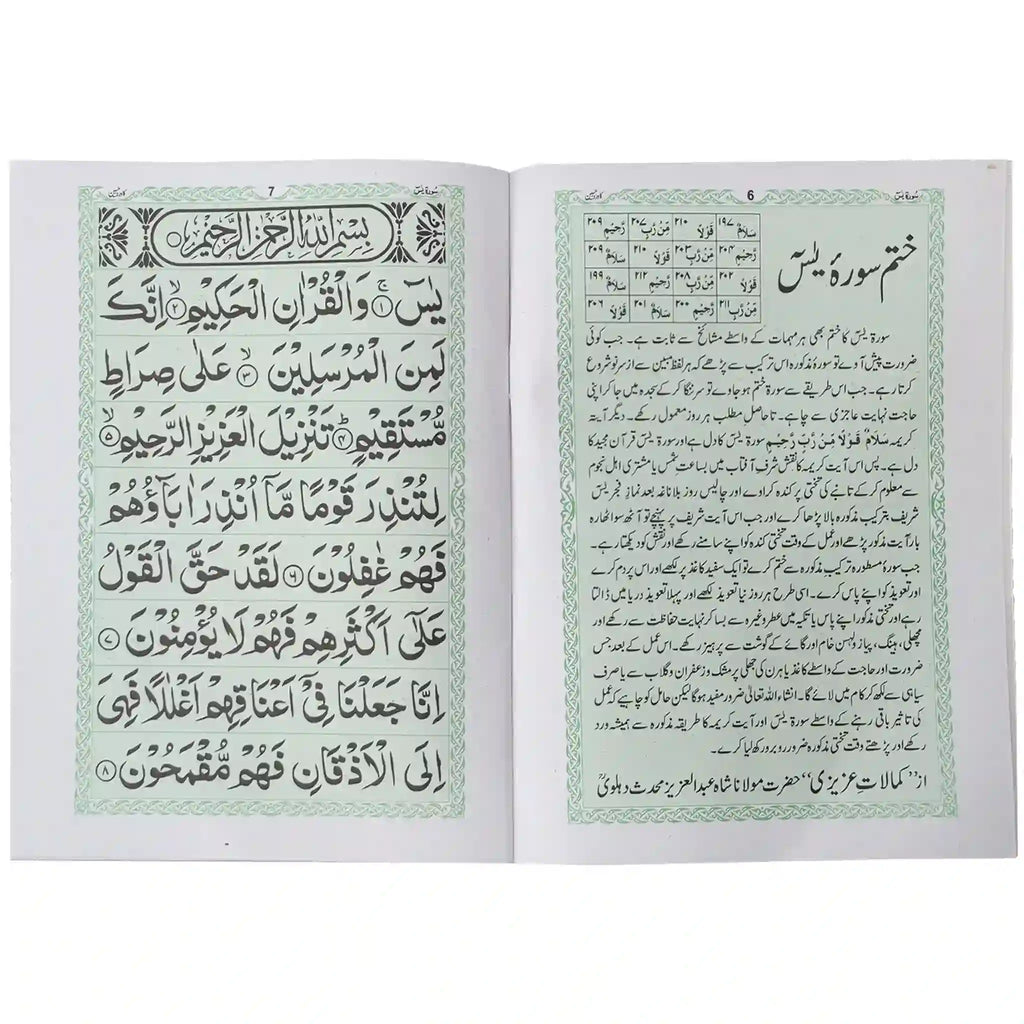 سُورَة يٰسٓ
6
۱۹۷ سَلَامٌ ۲۱۰ قَوْلًا ۲۰۷ مِّنْ رَّبٍّ ۲۰۹ رَّحِيْمٍ
۲۰۴ رَّحِيْمٍ ۲۰۳ مِّنْ رَّبٍّ ۲۱۰ قَوْلًا ۲۰۹ سَلَامٌ
۲۰۲ قَوْلًا ۲۰۸ مِّنْ رَّبٍّ ۲۱۲ رَّحِيْمٍ ۱۹۹ سَلَامٌ
۲۱۱ مِّنْ رَّبٍّ ۲۰۰ رَّحِيْمٍ ۲۰۱ سَلَامٌ ۲۰۶ قَوْلًا
ختم سورۂ یٰسٓ
سورۃ یٰسٓ کا ختم بھی ہر مہمات کے واسطے مشائخ سے ثابت ہے۔ جب کوئی
ضرورت پیش آوے تو سورہ مذکورہ اس ترکیب سے پڑھے کہ ہر لفظ مبین سے از سر نو شروع
کرتا رہے۔ جب اس طریقے سے سورۃ ختم ہو جاوے تو سر ننگا کر کے سجدہ میں جا کر اپنی
حاجت نہایت عاجزی سے چاہے۔ تا حاصل مطلب ہر روز معمول رکھے۔ دیگر آیتہ
کریمہ سَلَامٌ قَوْلًا مِّنْ رَّبٍّ رَّحِيْمٍ سورۃ یٰسٓ کا دل ہے اور سورۃ یٰسٓ قرآن مجید کا
دل ہے۔ پس اس آیت کریمہ کا نقش شرف آفتاب میں بساعت شمس یا مشتری اہل نجوم
سے معلوم کر کے تانبے کی تختی پر کندہ کراوے اور چالیس روز بلا ناغہ بعد نماز فجر یٰسٓ
شریف بترکیب مذکورہ بالا پڑھا کرے اور جب اس آیت شریف پر پہنچے تو آٹھ سو اٹھارہ
بار آیت مذکور پڑھے اور عمل کے وقت تختی کندہ کو اپنے سامنے رکھے اور نقش کو دیکھتا رہے۔
جب سورۃ مسطورہ ترکیب مذکورہ سے ختم کرے تو ایک سفید کاغذ پر لکھے اور اس پر دم کرے
اور تعویذ کو اپنے پاس کرے۔ اسی طرح ہر روز نیا تعویذ لکھے اور پہلا تعویذ دریا میں ڈالتا
رہے اور تختی مذکور اپنے پاس یا تکیہ میں عطر وغیرہ سے بسا کر نہایت حفاظت سے رکھے اور
مچھلی، ہینگ، پیاز و لہسن خام اور گائے کے گوشت سے پرہیز رکھے۔ اس عمل کے بعد جس
ضرورت اور حاجت کے واسطے کاغذ یا ہرن کی جھلی پر مشک و زعفران و گلاب سے یا صرف
سیاہی سے لکھ کر کام میں لائے گا۔ انشاء اللہ تعالیٰ ضرور مفید ہوگا لیکن حامل کو چاہیے کہ عمل
کی تاثیر باقی رہنے کے واسطے سورۃ یٰسٓ اور آیت کریمہ کا طریقہ مذکورہ سے ہمیشہ ورد
رکھے اور پڑھتے وقت تختی مذکورہ ضرور روبرو رکھ لیا کرے۔
از ”کمالاتِ عزیزی“ حضرت مولانا شاہ عبدالعزیز محدث دہلویؒ
سُورَة يٰسٓ
7
بِسْمِ اللّٰهِ الرَّحْمٰنِ الرَّحِيْمِ
يٰسٓ ۚ﴿۱﴾ وَالْقُرْاٰنِ الْحَكِيْمِ ۙ﴿۲﴾ اِنَّكَ
لَمِنَ الْمُرْسَلِيْنَ ۙ﴿۳﴾ عَلٰى صِرَاطٍ
مُّسْتَقِيْمٍ ؕ﴿۴﴾ تَنْزِيْلَ الْعَزِيْزِ الرَّحِيْمِ ۙ﴿۵﴾
لِتُنْذِرَ قَوْمًا مَّاۤ اُنْذِرَ اٰبَآؤُهُمْ
فَهُمْ غٰفِلُوْنَ ﴿۶﴾ لَقَدْ حَقَّ الْقَوْلُ
عَلٰۤى اَكْثَرِهِمْ فَهُمْ لَا يُؤْمِنُوْنَ ﴿۷﴾
اِنَّا جَعَلْنَا فِيْۤ اَعْنَاقِهِمْ اَغْلٰلًا فَهِيَ
اِلَى الْاَذْقَانِ فَهُمْ مُّقْمَحُوْنَ ﴿۸﴾